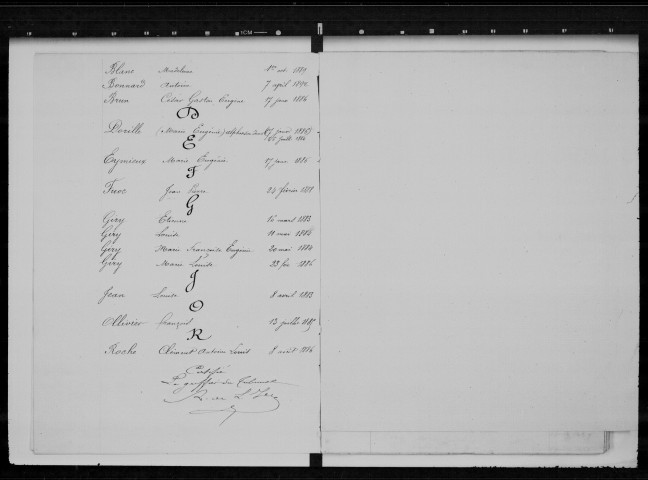 Blanc Madeleine 1er oct. 1889
Bonnard Antoine 7 april 1892
Brun César Gaston Eugène 17 janv 1886
D
Doville (Marie Eugénie) 17 janv
E
Eymieux Marie Eugénie 17 janv 1886
F
Jean Pierre 24 février 1888
G
Giry Etienne 16 mars 1883
Giry Louise 11 mai 1886
Giry Marie Françoise Eugénie 20 mai 1884
Giry Marie Louise 23 fév 1886
J
Jean Louise 8 avril 1883
O
Ollivier François 13 juillet 1887
R
Roche Clément Antoine Louis 8 août 1886
Certifié
Le greffier du Tribunal